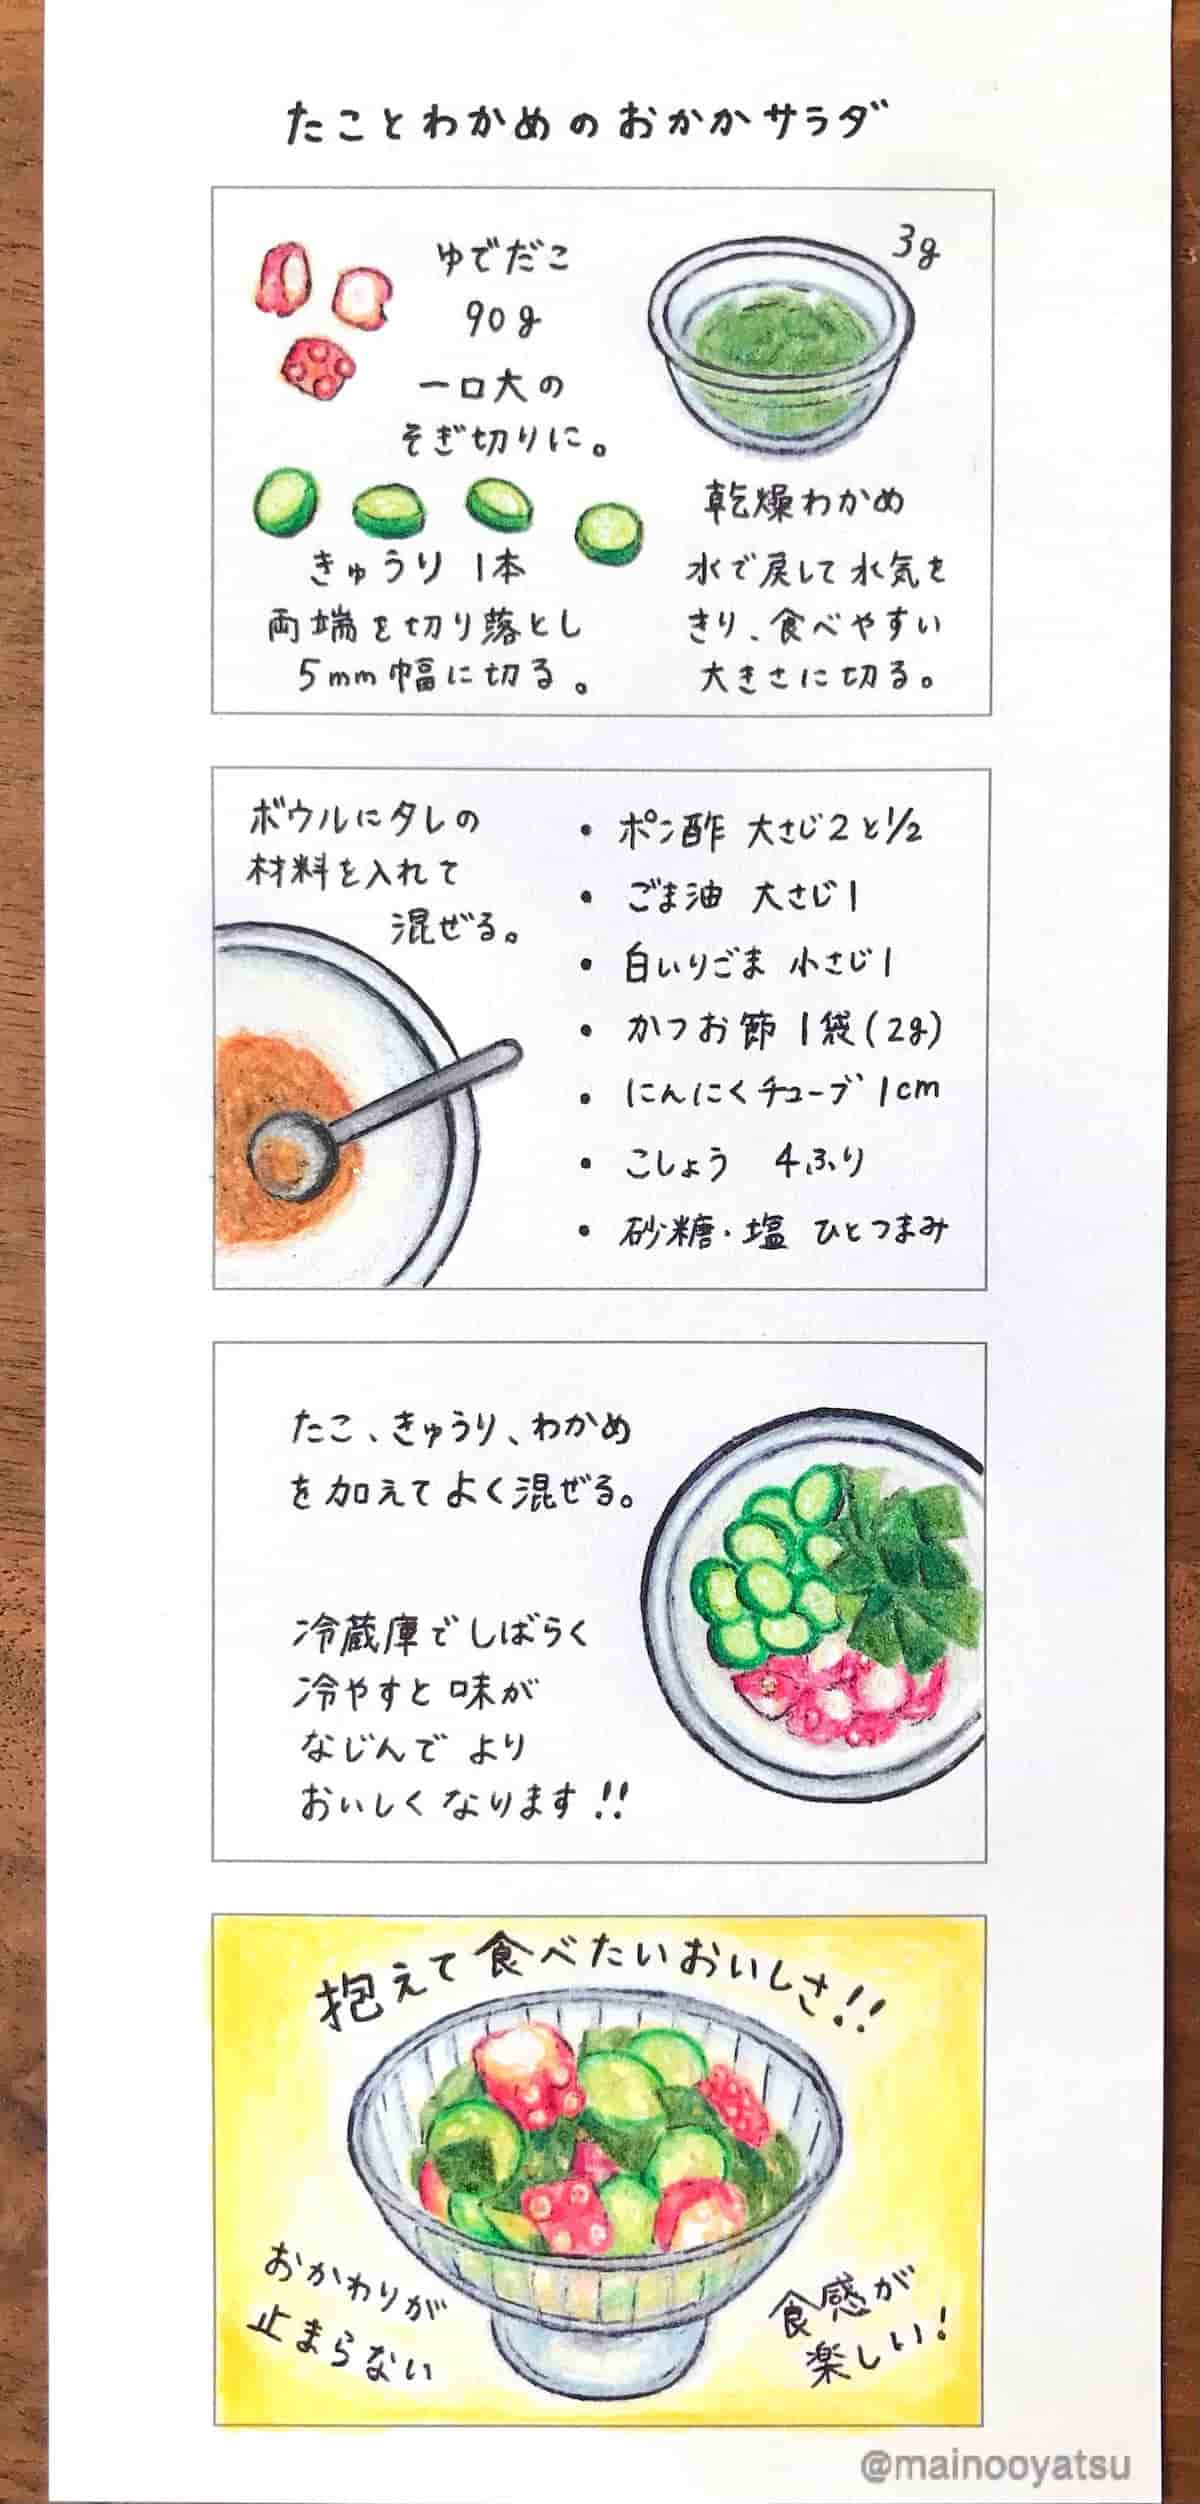 たことわかめのおかかサラダ
ゆでだこ
90g
一口大の
そぎ切りに。
きゅうり 1本
両端を切り落とし
5mm幅に切る。
3g
乾燥わかめ
水で戻して水気を
きり、食べやすい
大きさに切る。
ボウルにタレの
材料を入れて
混ぜる。
• ポン酢 大さじ2と1/2
• ごま油 大さじ1
• 白いりごま 小さじ1
• かつお節 1袋(2g)
• にんにくチューブ 1cm
• こしょう 4ふり
• 砂糖・塩 ひとつまみ
たこ、きゅうり、わかめ
を加えてよく混ぜる。
冷蔵庫でしばらく
冷やすと味が
なじんで より
おいしくなります!!
抱えて食べたいおいしさ!!
おかわりが
止まらない
食感が
楽しい!
@mainooyatsu